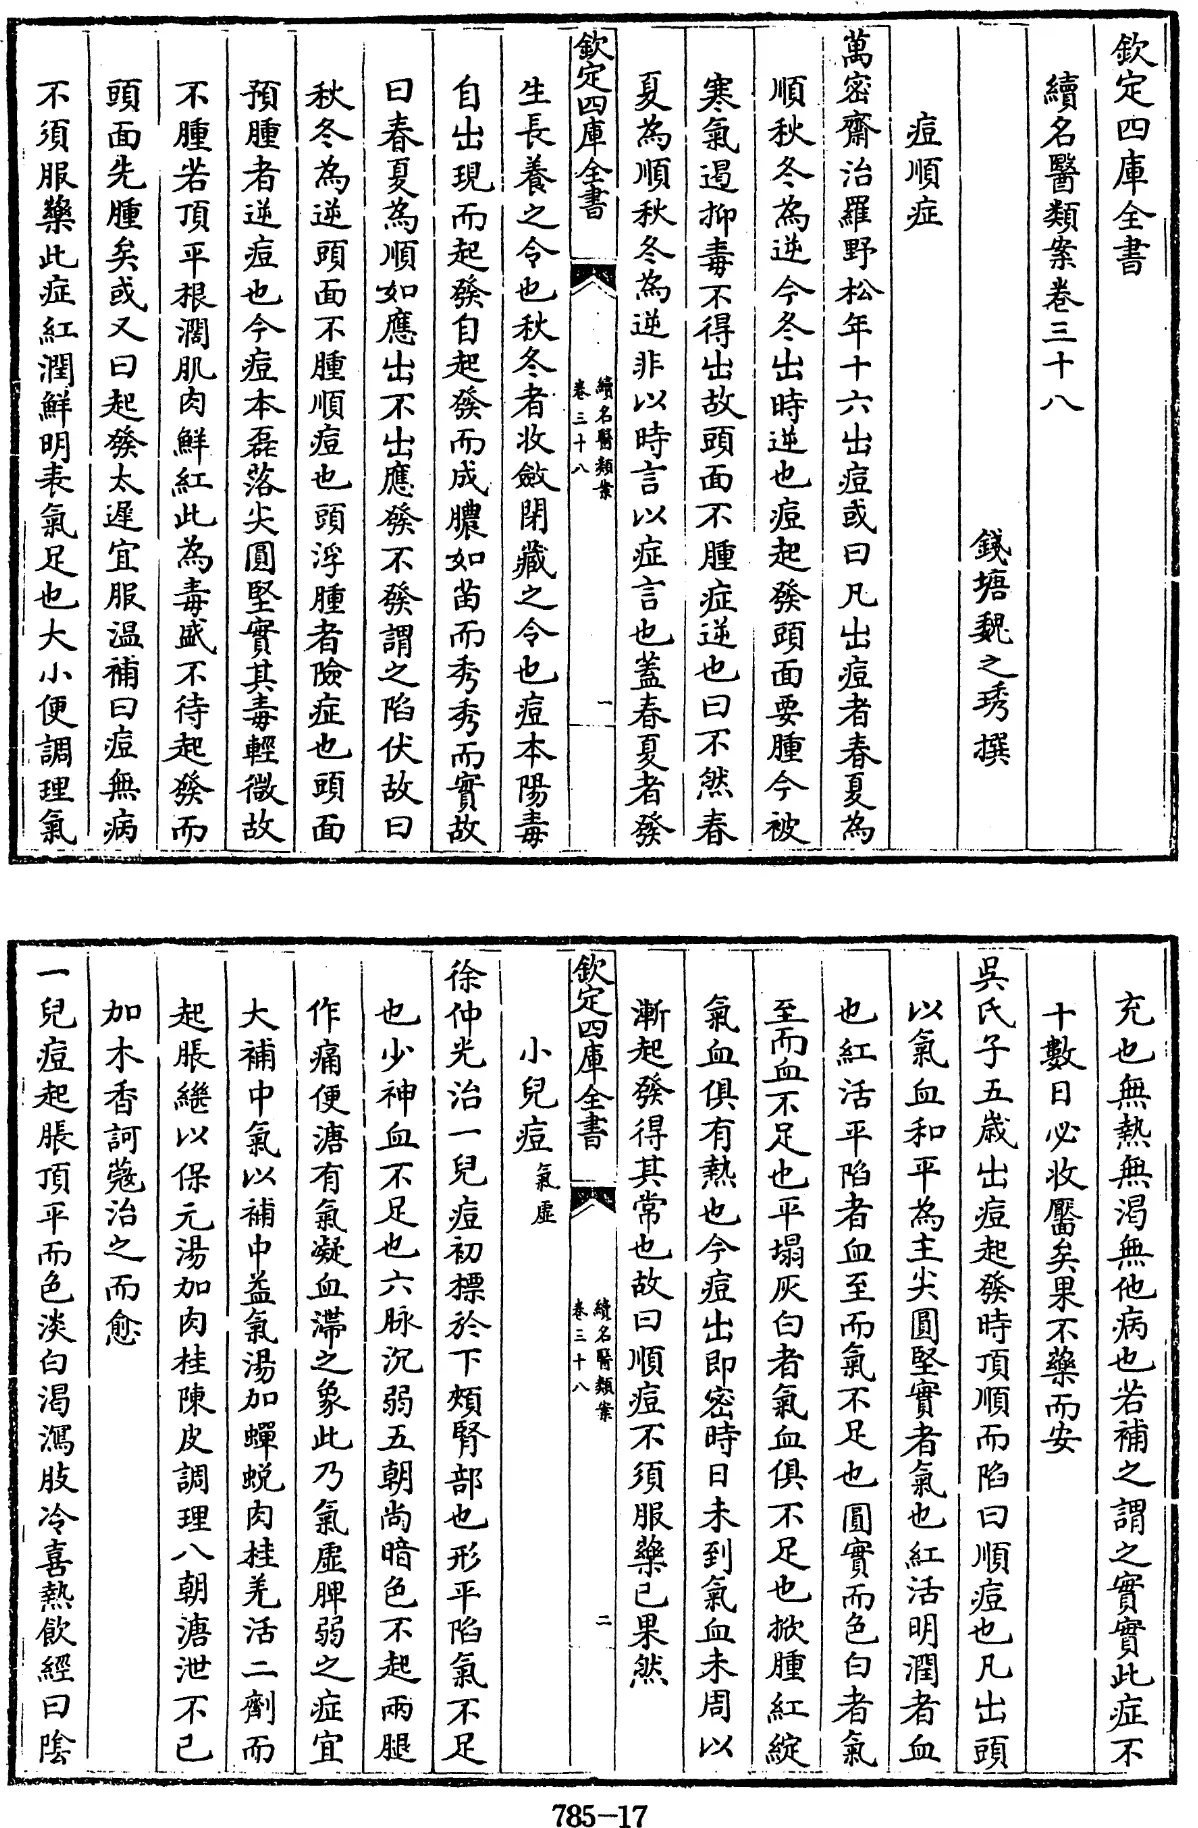 欽定四庫全書
續名醫類案卷三十八
錢塘魏之琇撰
痘順症
萬密齋治羅野松年十六出痘或曰凡出痘者春夏為
順秋冬為逆今冬出時逆也痘起發頭面要腫今被
寒氣遏抑毒不得出故頭面不腫症逆也曰不然春
夏為順秋冬為逆非以時言以症言也蓋春夏者發
欽定四庫全書
續名醫類案
卷三十八
一
生長養之令也秋冬者收斂閉藏之令也痘本陽毒
自出現而起發自起發而成膿如苗而秀秀而實故
曰春夏為順如應出不出應發不發謂之陷伏故曰
秋冬為逆頭面不腫順痘也頭浮腫者險症也頭面
預腫者逆痘也今痘本磊落尖圓堅實其毒輕微故
不腫若頂平根濶肌肉鮮紅此為毒盛不待起發而
頭面先腫矣或又曰起發太遲宜服温補曰痘無病
不須服藥此症紅潤鮮明表氣足也大小便調理氣
充也無熱無渴無他病也若補之謂之實實此症不
十數日必收靨矣果不藥而安
吳氏子五歲出痘起發時頂順而陷曰順痘也凡出頭
以氣血和平為主尖圓堅實者氣也紅活明潤者血
也紅活平陷者血至而氣不足也圓實而色白者氣
至而血不足也平塌灰白者氣血俱不足也掀腫紅綻
氣血俱有熱也今痘出即密時日未到氣血未周以
漸起發得其常也故曰順痘不須服藥已果然
欽定四庫全書
續名醫類案
卷三十八
二
小兒痘氣虛
徐仲光治一兒痘初標於下頰腎部也形平陷氣不足
也少神血不足也六脉沉弱五朝尚暗色不起兩腿
作痛便溏有氣凝血滯之象此乃氣虛脾弱之症宜
大補中氣以補中益氣湯加蟬蛻肉桂羌活二劑而
起脹繼以保元湯加肉桂陳皮調理八朝溏泄不已
加木香訶蔻治之而愈
一兒痘起脹頂平而色淡白渴瀉肢冷喜熱飲經曰陰
785-17